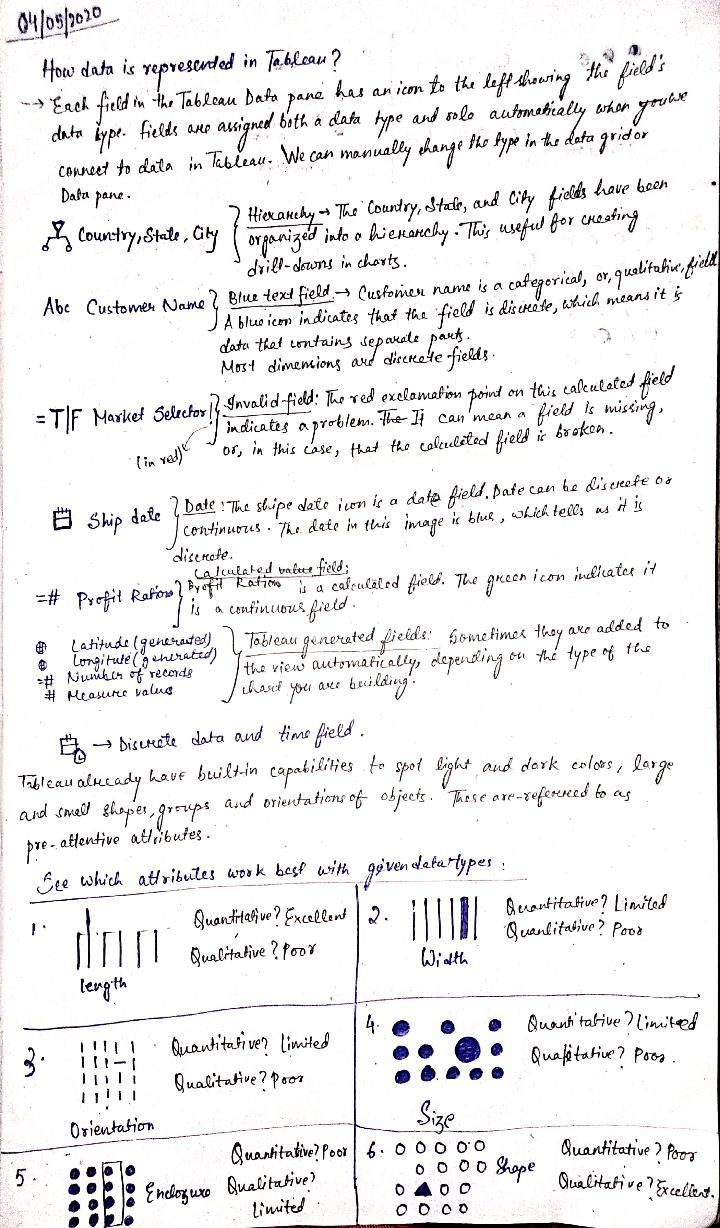 04/05/2020
How data is represented in Tableau?
→ Each field in the Tableau Data pane has an icon to the left showing the field's
data type. Fields are assigned both a data type and role automatically when you've
connect to data in Tableau. We can manually change the type in the data grid or
Data pane.
Country, State, City
Hierarchy → The Country, State, and City fields have been
organized into a hierarchy. This useful for creating
drill-downs in charts.
Abc Customer Name
Blue text field → Customer name is a categorical, or, qualitative, field
A blue icon indicates that the field is discrete, which means it is
data that contains separate parts.
Most dimensions are discrete fields.
=T|F Market Selector
(in red)
Invalid-field: The red exclamation point on this calculated field
indicates a problem. The It can mean a field is missing,
or, in this case, that the calculated field is broken.
Ship date
Date: The shipe date icon is a date field. Date can be discrete or
continuous. The date in this image is blue, which tells us it is
discrete.
=# Profit Ration
Calculated value field:
Profit Ration is a calculated field. The green icon indicates it
is a continuous field.
Latitude (generated)
Longitute (generated)
=# Number of records
# Measure value
Tableau generated fields: Sometimes they are added to
the view automatically, depending on the type of the
chart you are building.
→ Discrete data and time field.
Tableau already have built-in capabilities to spot light and dark colors, large
and small shapes, groups and orientations of objects. These are-refereced to as
pre-attentive attributes.
See which attributes work best with given datatypes:
1.
Quantitative? Excellent
Qualitative? Poor
length
2.
Quantitative? Limited
Quanlitative? Poor
Width
3.
Quantitative? Limited
Qualitative? Poor
Orientation
4.
Quantitative? Limited
Qualitative? Poor.
Size
5.
Enclozure
Quantitative? Poor
Qualitative?
Limited
6.
Shape
Quantitative? Poor
Qualitative? Excellent.